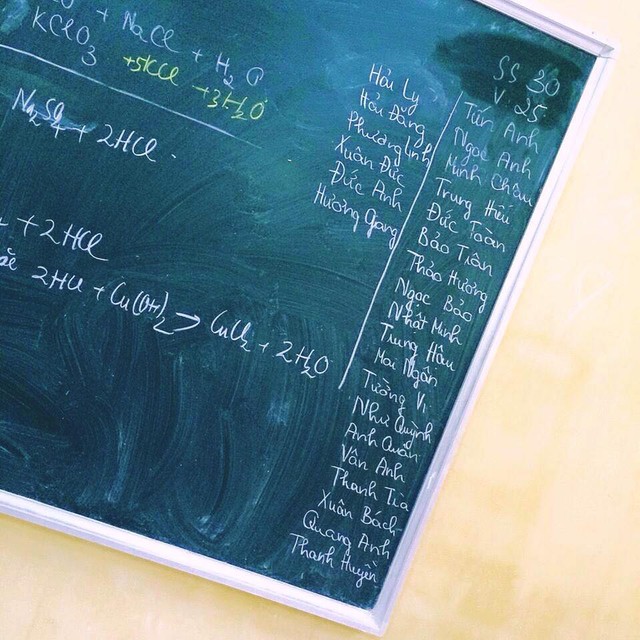 + NaCl + H₂O
KClO₃ +5KCl +3H₂O
Na₂SO₄ + 2HCl
+ 2HCl
2HCl + Cu(OH)₂ → CuCl₂ + 2H₂O
Hải Ly
Hải Đăng
Phương Linh
Xuân Đức
Đức Anh
Hương Giang
SS 30
V. 25
Tuấn Anh
Ngọc Anh
Minh Châu
Trung Hiếu
Đức Toàn
Bảo Trân
Thảo Hương
Ngọc Bảo
Nhật Minh
Trung Hậu
Mai Ngân
Tường Vi
Như Quỳnh
Anh Quân
Vân Anh
Thanh Trà
Xuân Bách
Quang Anh
Thanh Huyền